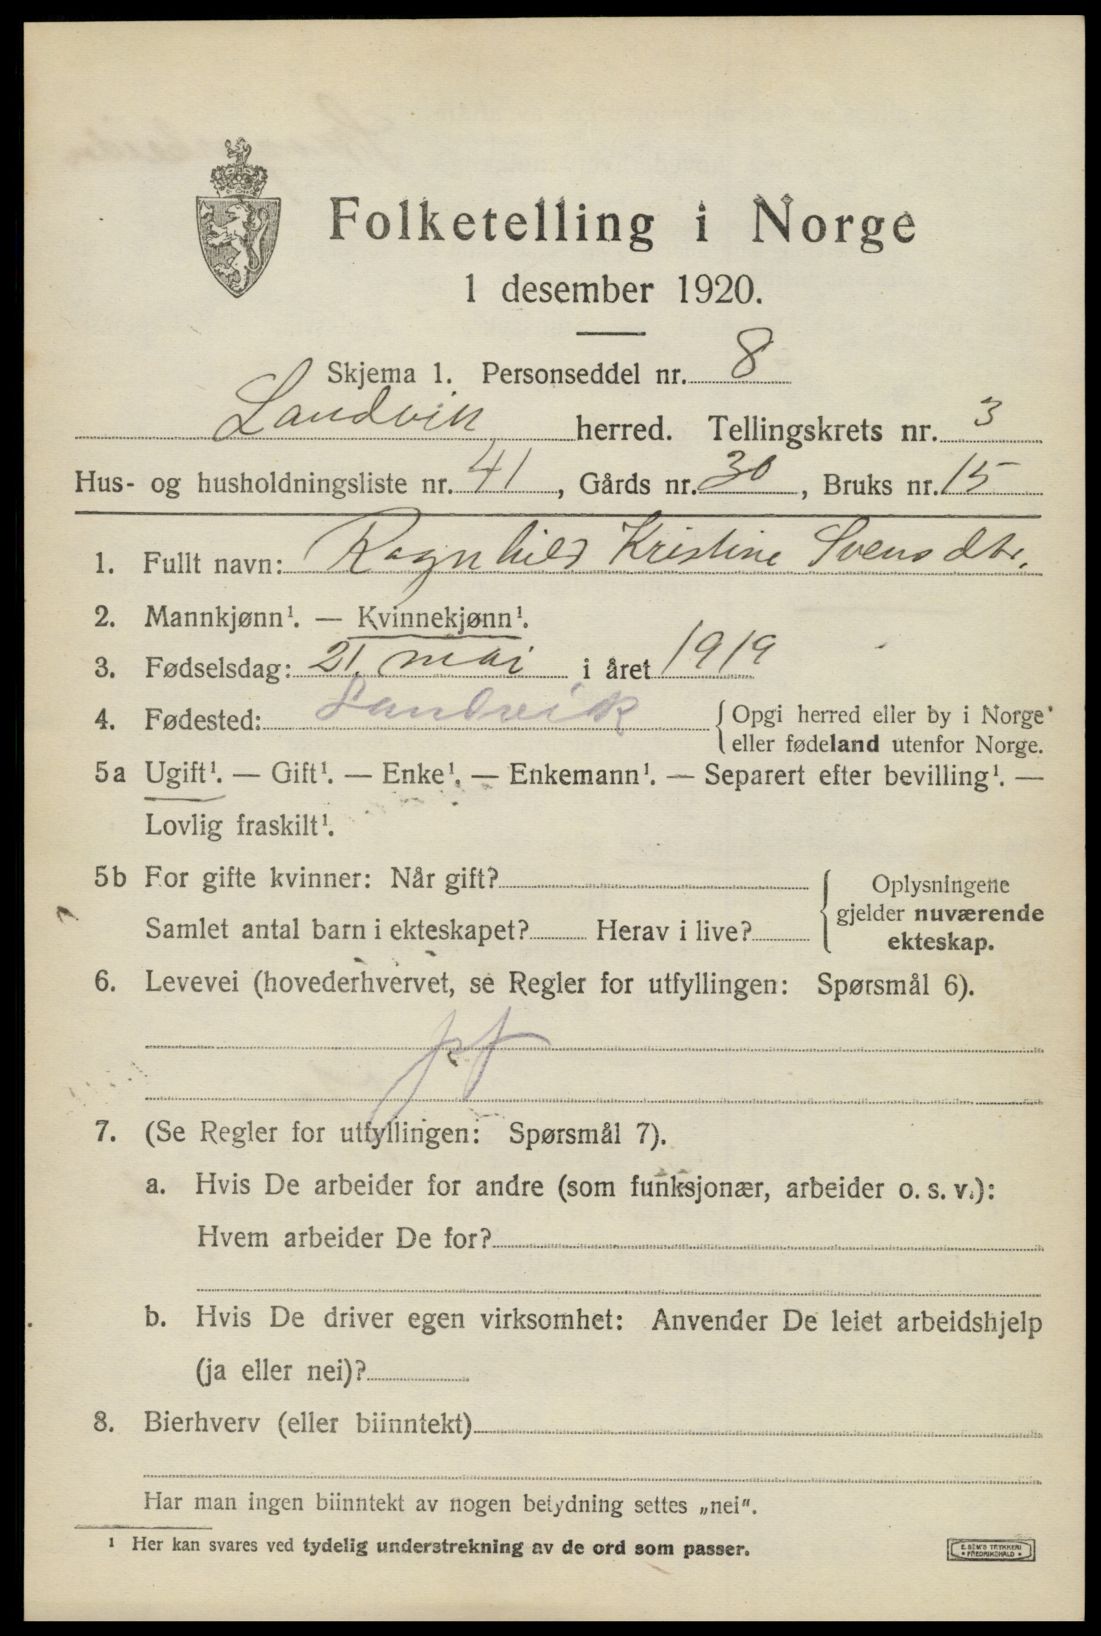 Folketelling i Norge
1 desember 1920.
Skjema 1. Personseddel nr. 8
Landvik herred. Tellingskrets nr. 3
Hus- og husholdningsliste nr. 41, Gårds nr. 30, Bruks nr. 15
1. Fullt navn: Ragnhild Kristine Svensdtr.
2. Mannkjønn¹. — Kvinnekjønn¹.
3. Fødselsdag: 21. mai i året 1919
4. Fødested: Landvik {Opgi herred eller by i Norge
eller fødeland utenfor Norge.
5a Ugift¹. — Gift¹. — Enke¹. — Enkemann¹. — Separert efter bevilling¹. —
Lovlig fraskilt¹.
5b For gifte kvinner: Når gift?
Samlet antal barn i ekteskapet? Herav i live?
{Oplysningene
gjelder nuværende
ekteskap.
6. Levevei (hovederhvervet, se Regler for utfyllingen: Spørsmål 6).
7. (Se Regler for utfyllingen: Spørsmål 7).
a. Hvis De arbeider for andre (som funksjonær, arbeider o. s. v.):
Hvem arbeider De for?
b. Hvis De driver egen virksomhet: Anvender De leiet arbeidshjelp
(ja eller nei)?
8. Bierhverv (eller biinntekt)
Har man ingen biinntekt av nogen betydning settes „nei".
¹ Her kan svares ved tydelig understrekning av de ord som passer.
E. SEM'S TRYKKERI
FREDRIKSHALD